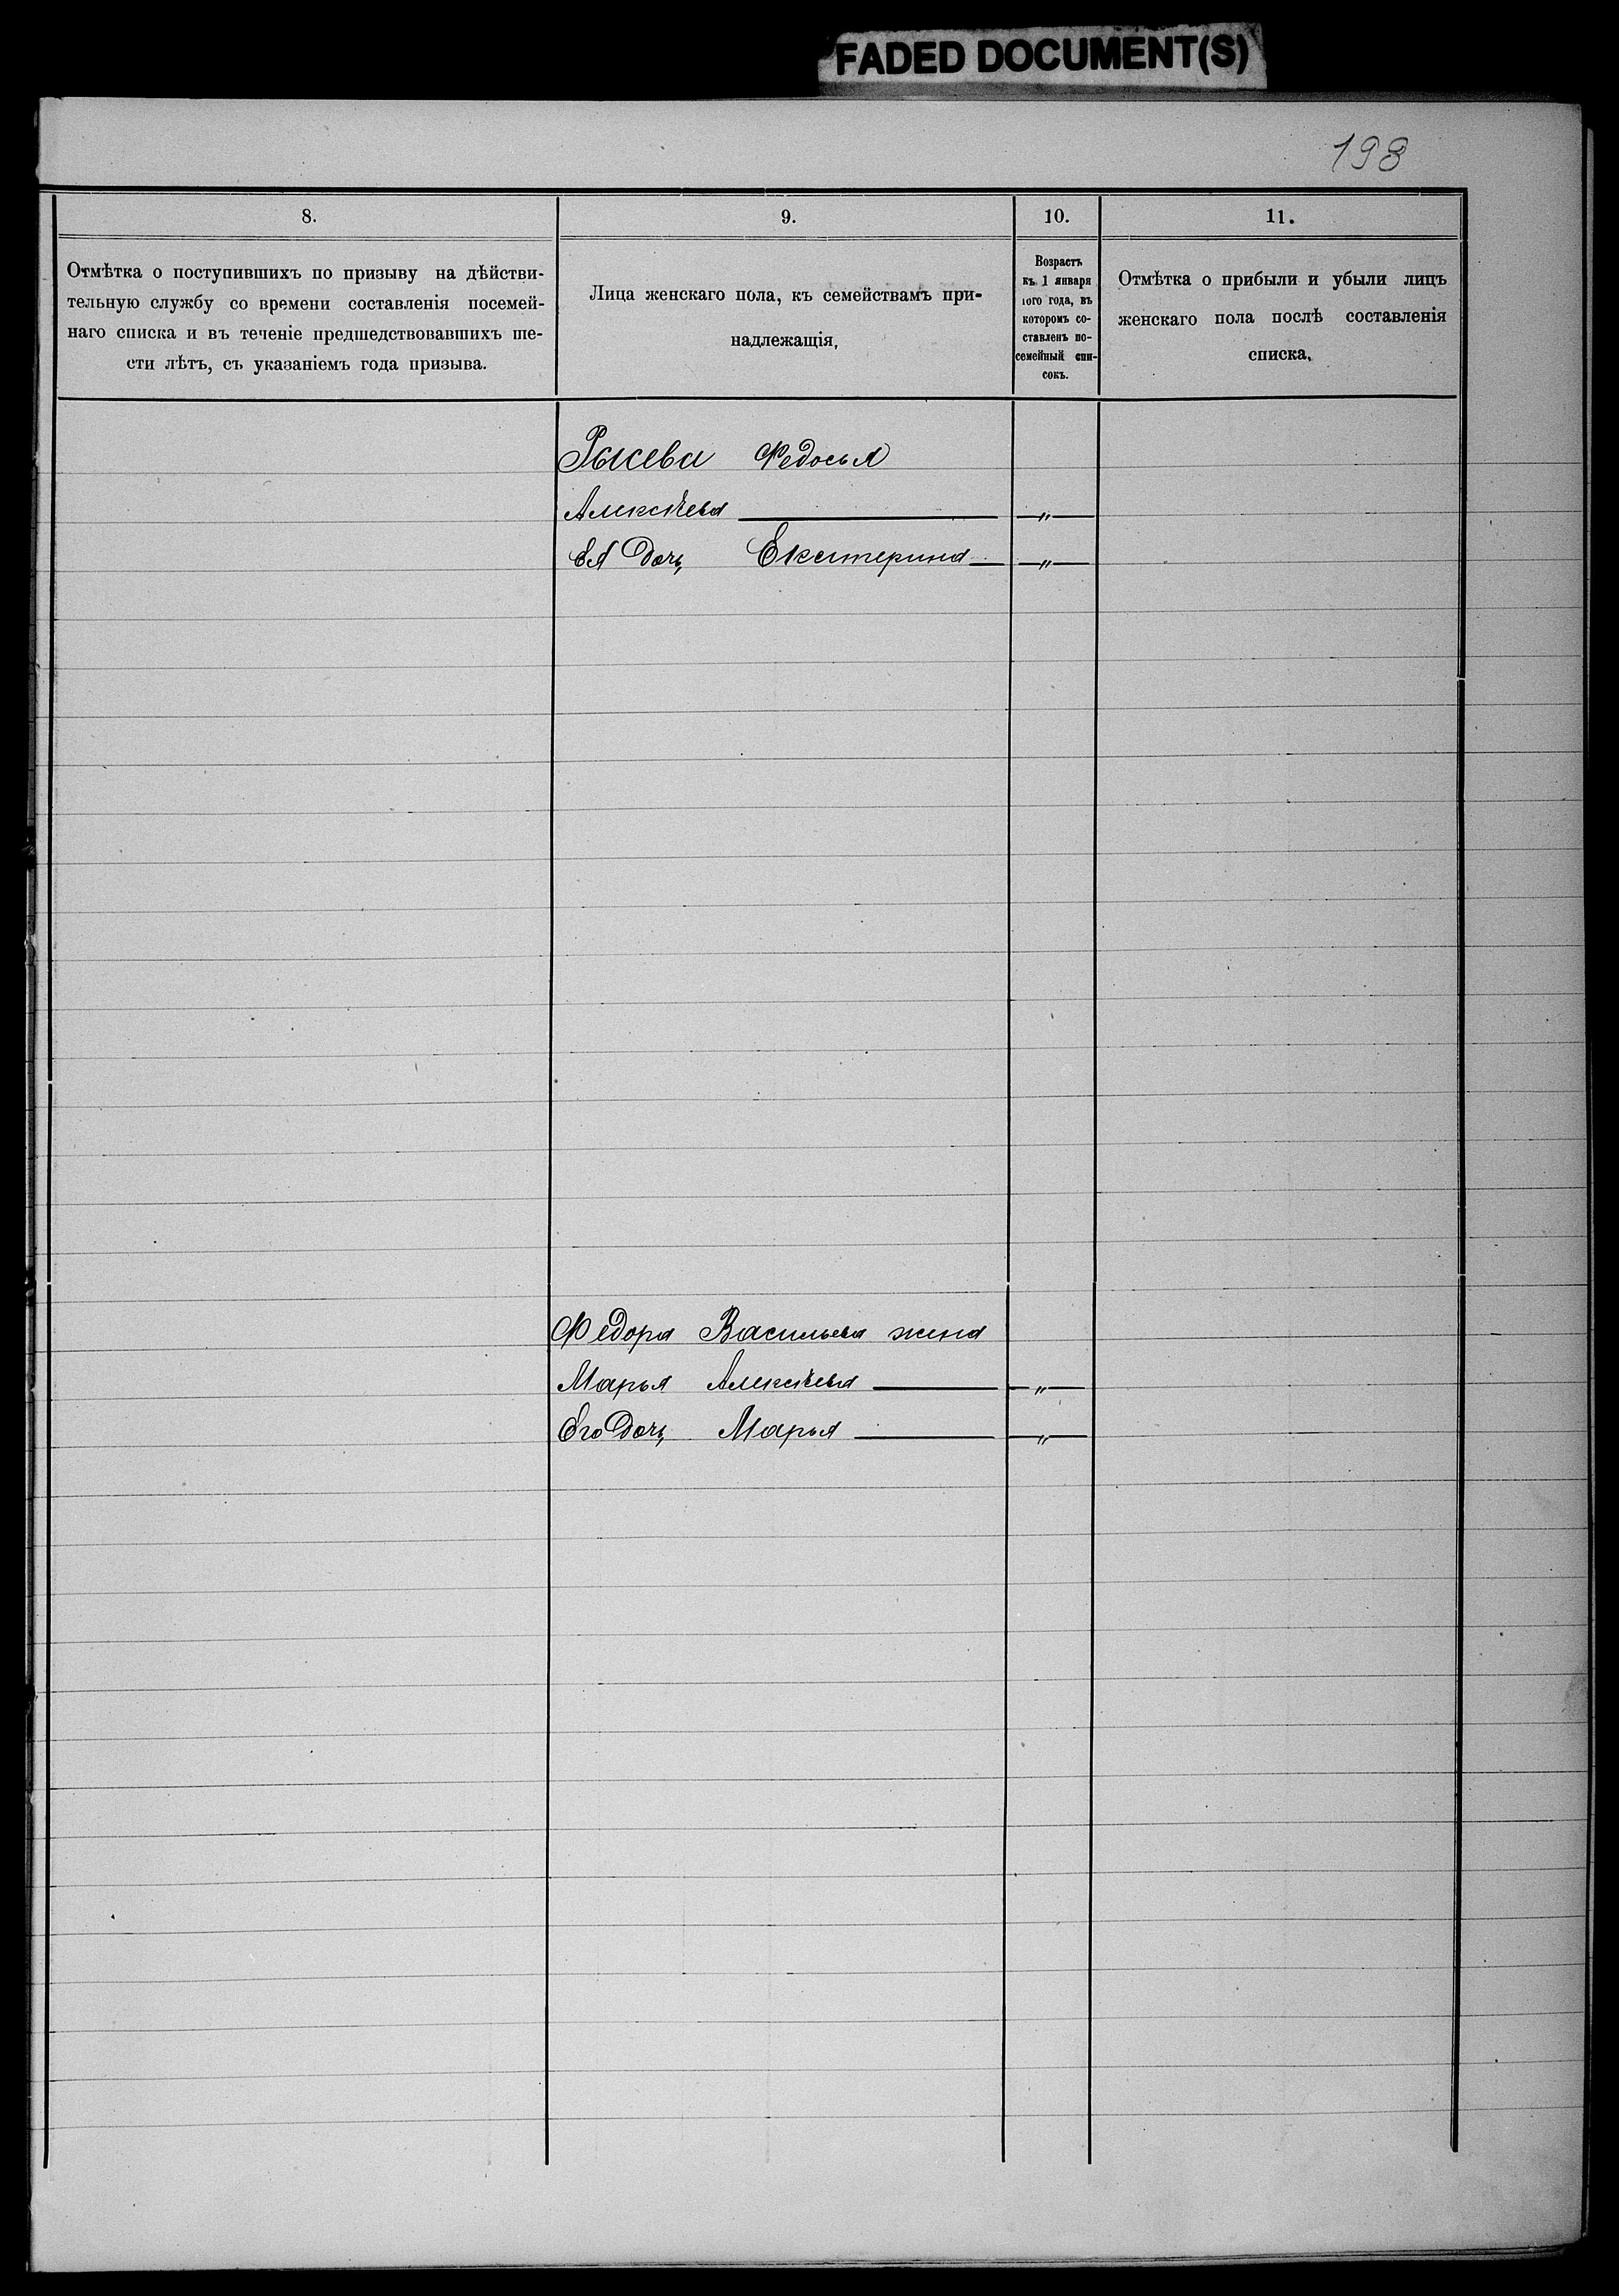 FADED DOCUMENT(S)
198
8.
9.
10.
11.
Отмѣтка о поступившихъ по призыву на дѣйстви-
тельную службу со времени составленія посемей-
наго списка и въ теченіе предшедствовавшихъ ше-
сти лѣтъ, съ указаніемъ года призыва.
Лица женскаго пола, къ семействамъ при-
надлежащія,
Возрастъ
къ 1 января
того года, въ
которомъ со-
ставленъ по-
семейный спи-
сокъ.
Отмѣтка о прибыли и убыли лицъ
женскаго пола послѣ составленія
списка.
Федосья
Алексѣева — „ —
Ея дочь Екатерина — „ —
Федора Васильева жена
Марья Алексѣева — „ —
Его дочь Марья — „ —